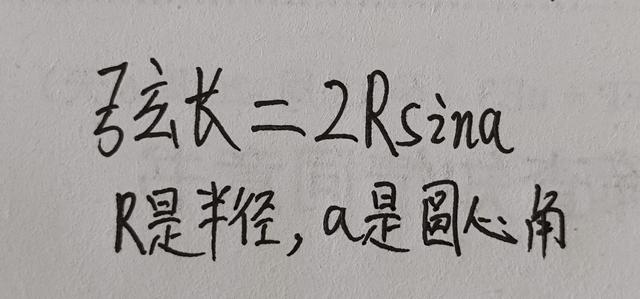 弦长=2Rsina
R是半径,a是圆心角